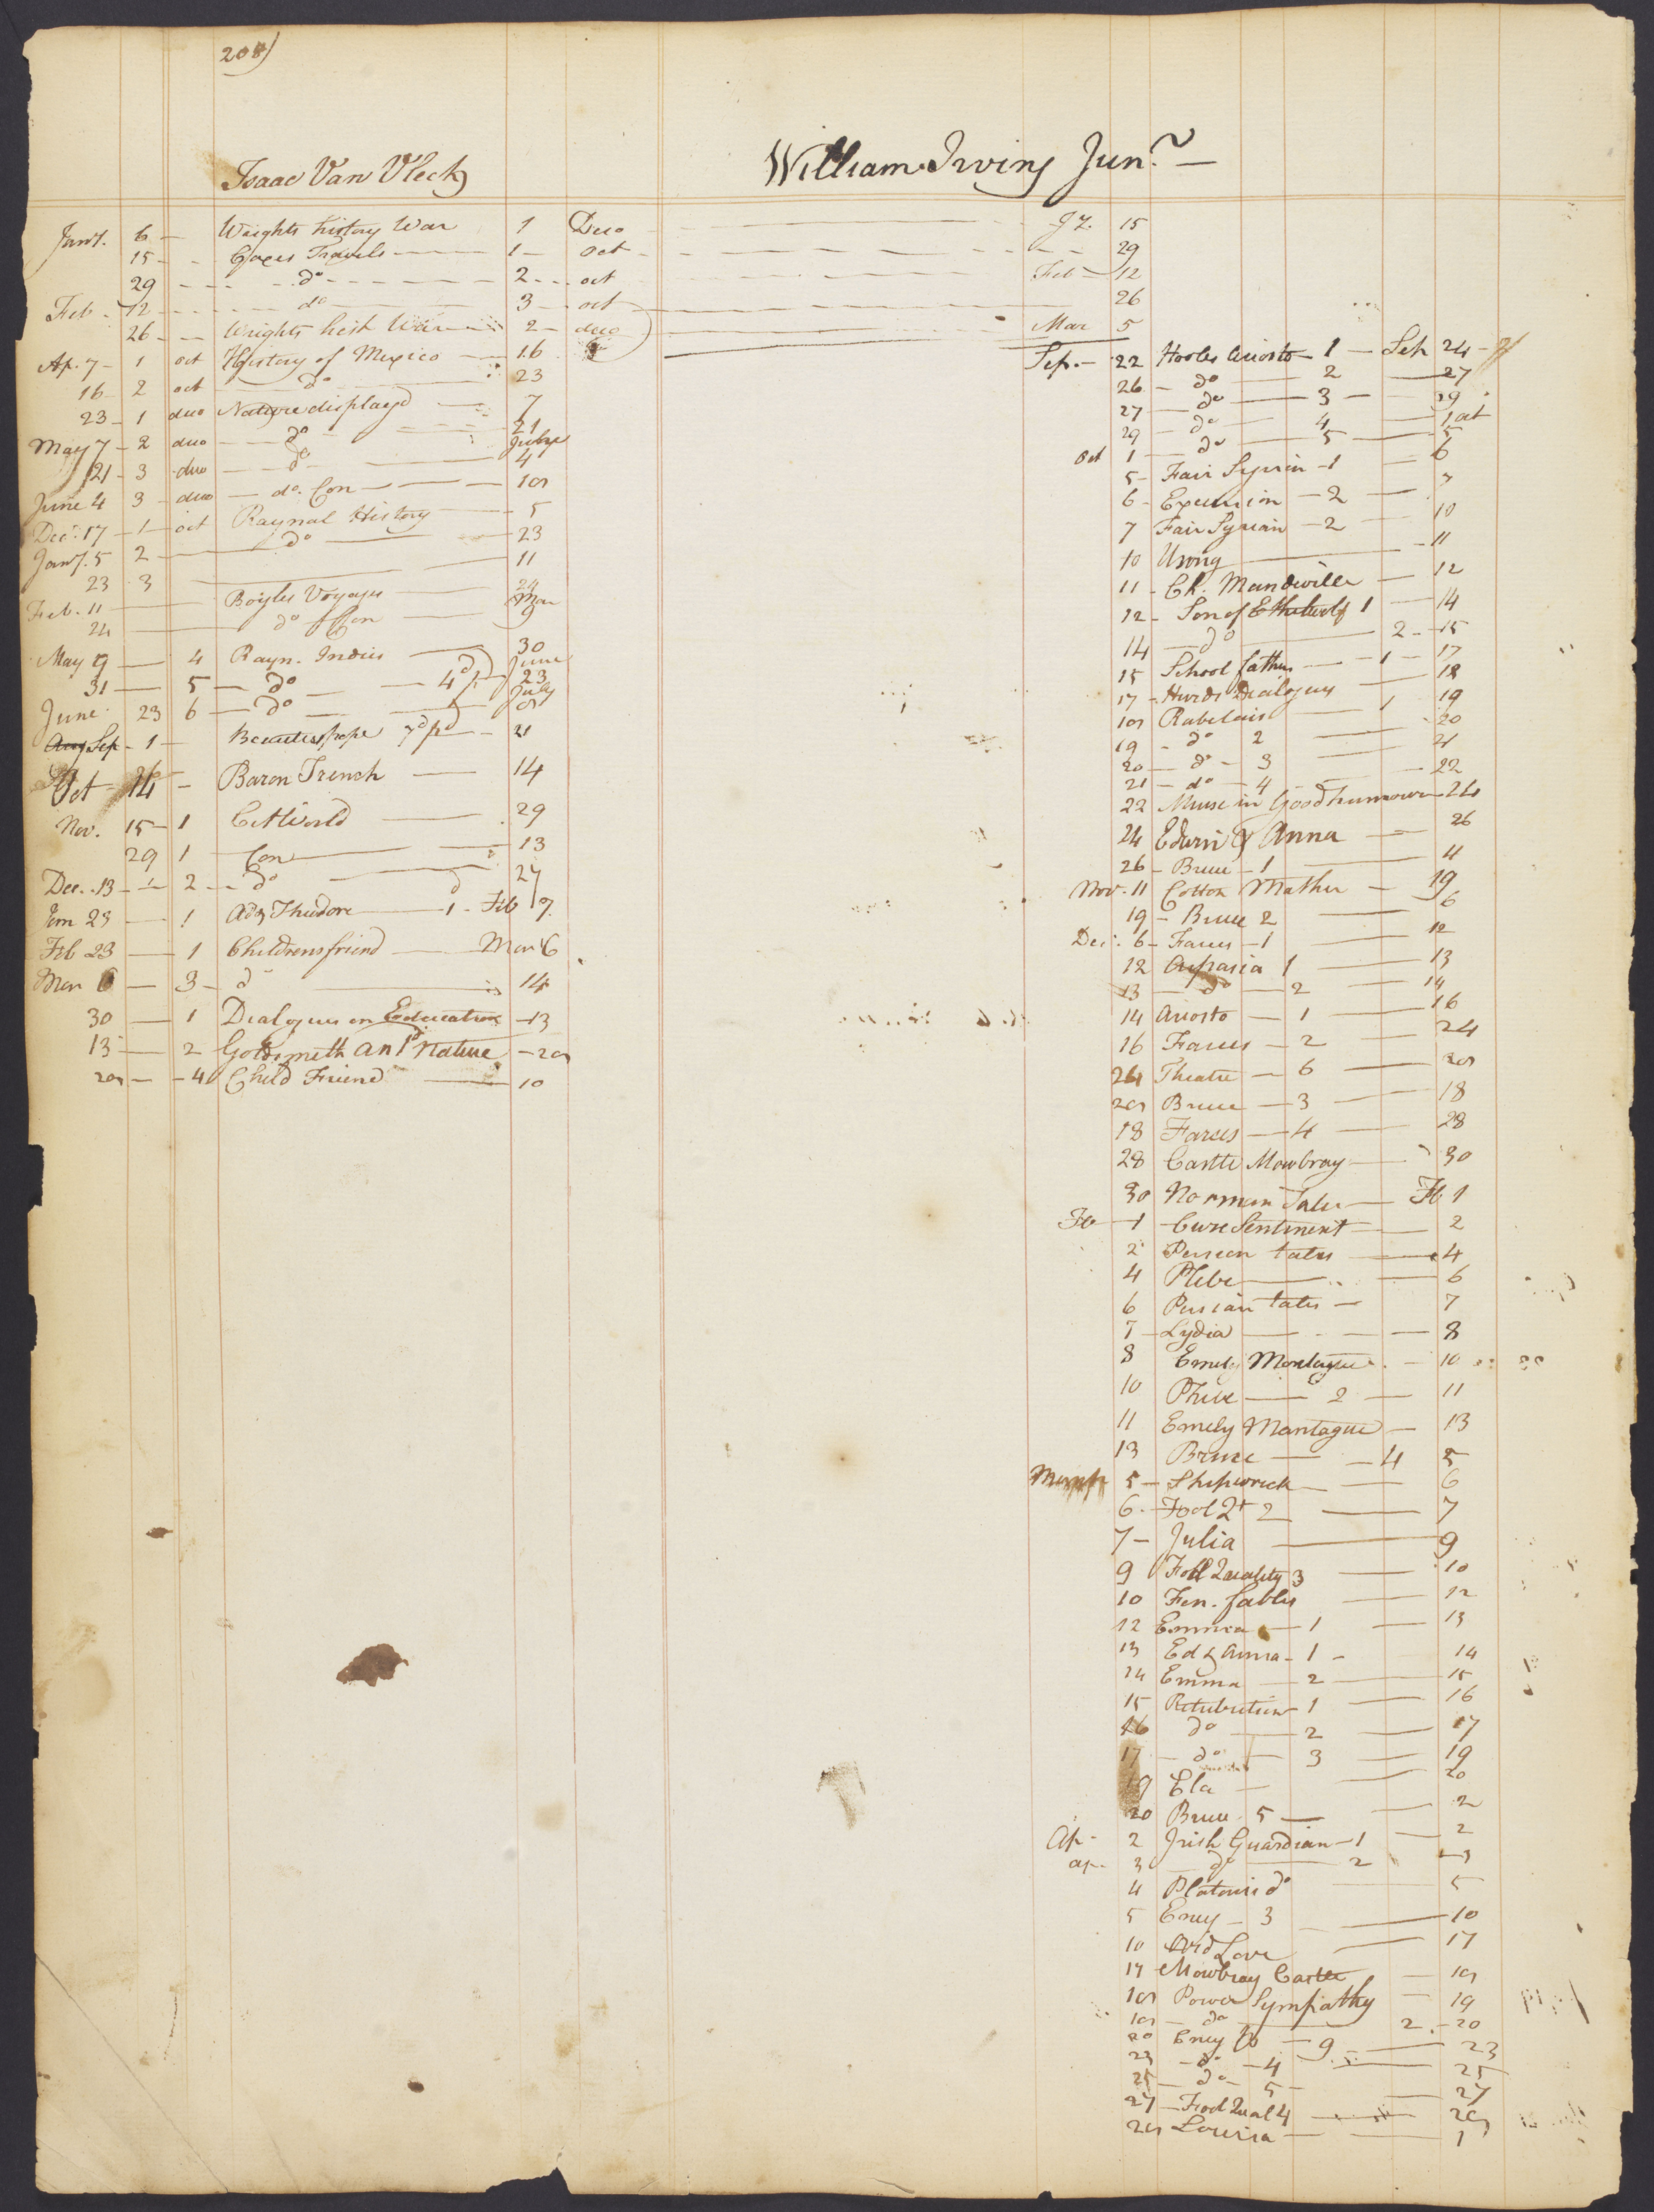 208)
Isaac Van Vleck
Jany. 6 — Wrights history War 1 Duo Jy. 15
15 - - Coxes Travels 1 - Oct 29
29 - - do 2 - oct Feb 12
Feb - 12 - do 3 - oct 26
26 - - Wrights hist War 2 - duo Mar 5
Ap. 7 - 1 oct History of Mexico 16
16 - 2 oct do 23
23 - 1 duo Nature displayd 7
May 7 - 2 duo do 21
21 - 3 duo do June 4
June 4 3 - duo - do. Con 18
Dec. 17 - 1 - oct Raynal History 5
Jany. 5 2 do 23
23 3 11
Feb. 11 Boyles Voyages 24
24 do Con Mar 9
May 9 4 Rayn. Indies 30
31 - 5 - do - 4d pd June 23
June 23 6 - do July 8
Sep - 1 - Beauties pope 7d pd 21
Oct 14 - Baron Trenck 14
Nov. 15 - 1 Cit World 29
29 1 Con 13
Dec. 13 - 2 - do 27
Jan 23 1 Ad & Thudore 1 - Feb 7
Feb 23 1 Childrens friend Mar 6
Mar 6 - 3 - do 14
30 1 Dialogues on Education - 13
13 2 Goldsmith An d Nature - 28
28 - 4 Child Friend 10
William Irving Junr. —
Sep. - 22 Hooles Ariosto - 1 - Seh 24
26 - do 2 27
27 - do 3 - 29
29 - do 4 1 oct
Oct 1 - do 5 5
5 - Fair Syrian - 1 6
6 - Excursion - 2 - 7
7 Fair Syrian - 2 10
10 Usong - 11
11 - Ch. Mandeville 12
12 - Son of Ethelwolf 1 14
14 - do 2 - 15
15 School fathers - 1 - 17
17 - Hurds Dialogues 18
18 Rabelais 1 19
19 - do 2 20
20 - do - 3 21
21 - do - 4 22
22 Muse in Good humour 24
24 Edwin & Anna 26
26 - Bruce - 1 11
Nov. 11 Cotton Mather 19
19 - Bruce 2 6
Dec. 6 - Farces - 1 12
12 Aspasia 1 13
13 - do - 2 14
14 Ariosto - 1 16
16 Farces - 2 24
24 Theatre - 6 28
28 Bruce - 3 18
18 Farces - 4 28
28 Castle Mowbray 30
30 Norman Tales Fb 1
Fb - 1 - Curse Sentiment 2
2 Persian tales 4
4 Phebe 6
6 Persian tales - 7
7 - Lydia 8
8 Emely Montague - 10
10 Phebe - 2 - 11
11 Emely Montague - 13
13 Bruce - 4 5
March 5 - Shipwreck 6
6 - Fool Qt 2 7
7 - Julia 9
9 Foll Quality 3 10
10 Fen. fables 12
12 Emma - 1 13
13 Ed & Anna - 1 - 14
14 Emma - 2 15
15 Retribution - 1 16
16 do 2 17
17 - do 3 19
19 Ela 20
20 Bruce - 5 - 2
Ap - 2 Irish Guardian - 1 2
ap - 3 do 2 3
4 Platonic do 5
5 Ency - 3 10
10 Love 17
17 Mowbray Castle 18
18 Power Sympathy 19
18 - do 2 - 20
20 Ency - 9 23
23 - do - 4 25
25 - do - 5 - 27
27 - Fool Qual 4 28
28 Louisa 1